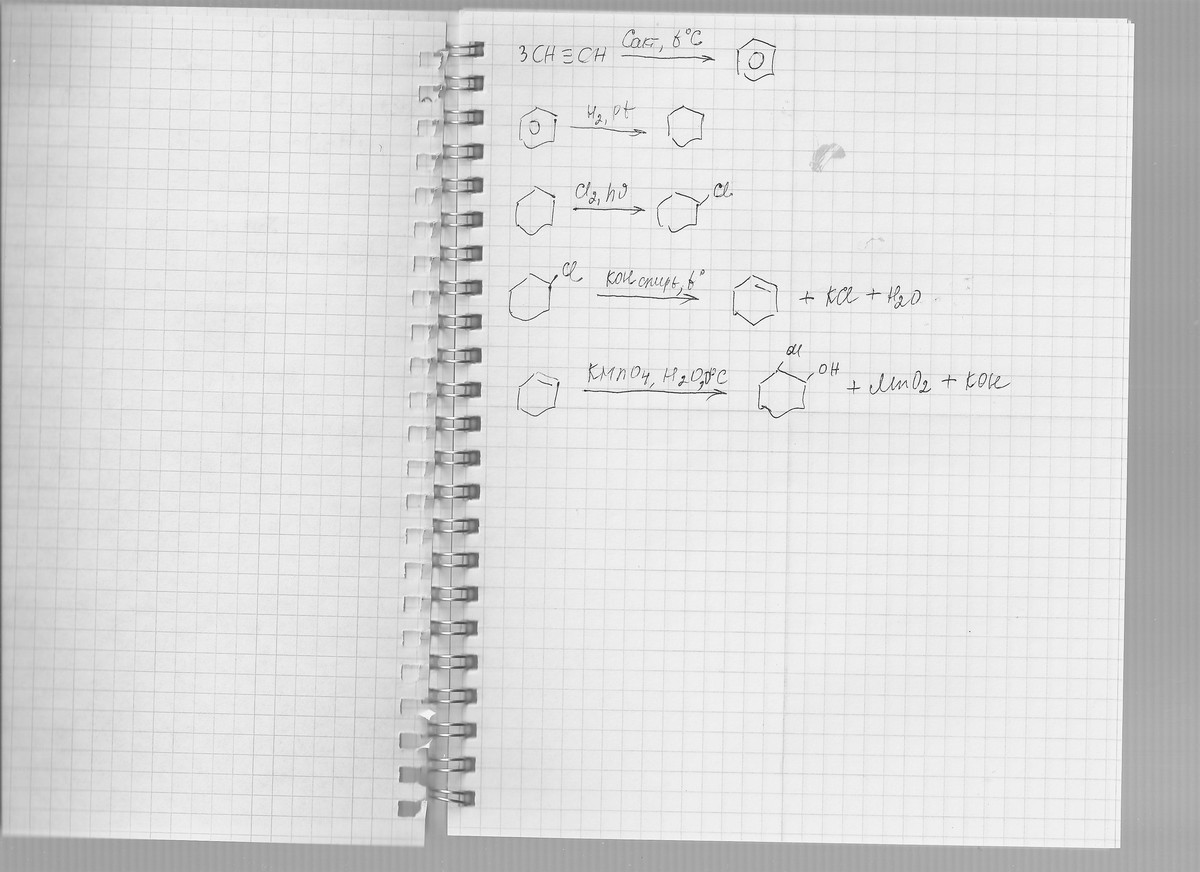 3CH≡CH Cакт, t°C
H₂, Pt
Cl₂, hϑ Cl
Cl KOH спирт, t° + KCl + H₂O
KMnO₄, H₂O, 0°C OH OH + MnO₂ + KOH